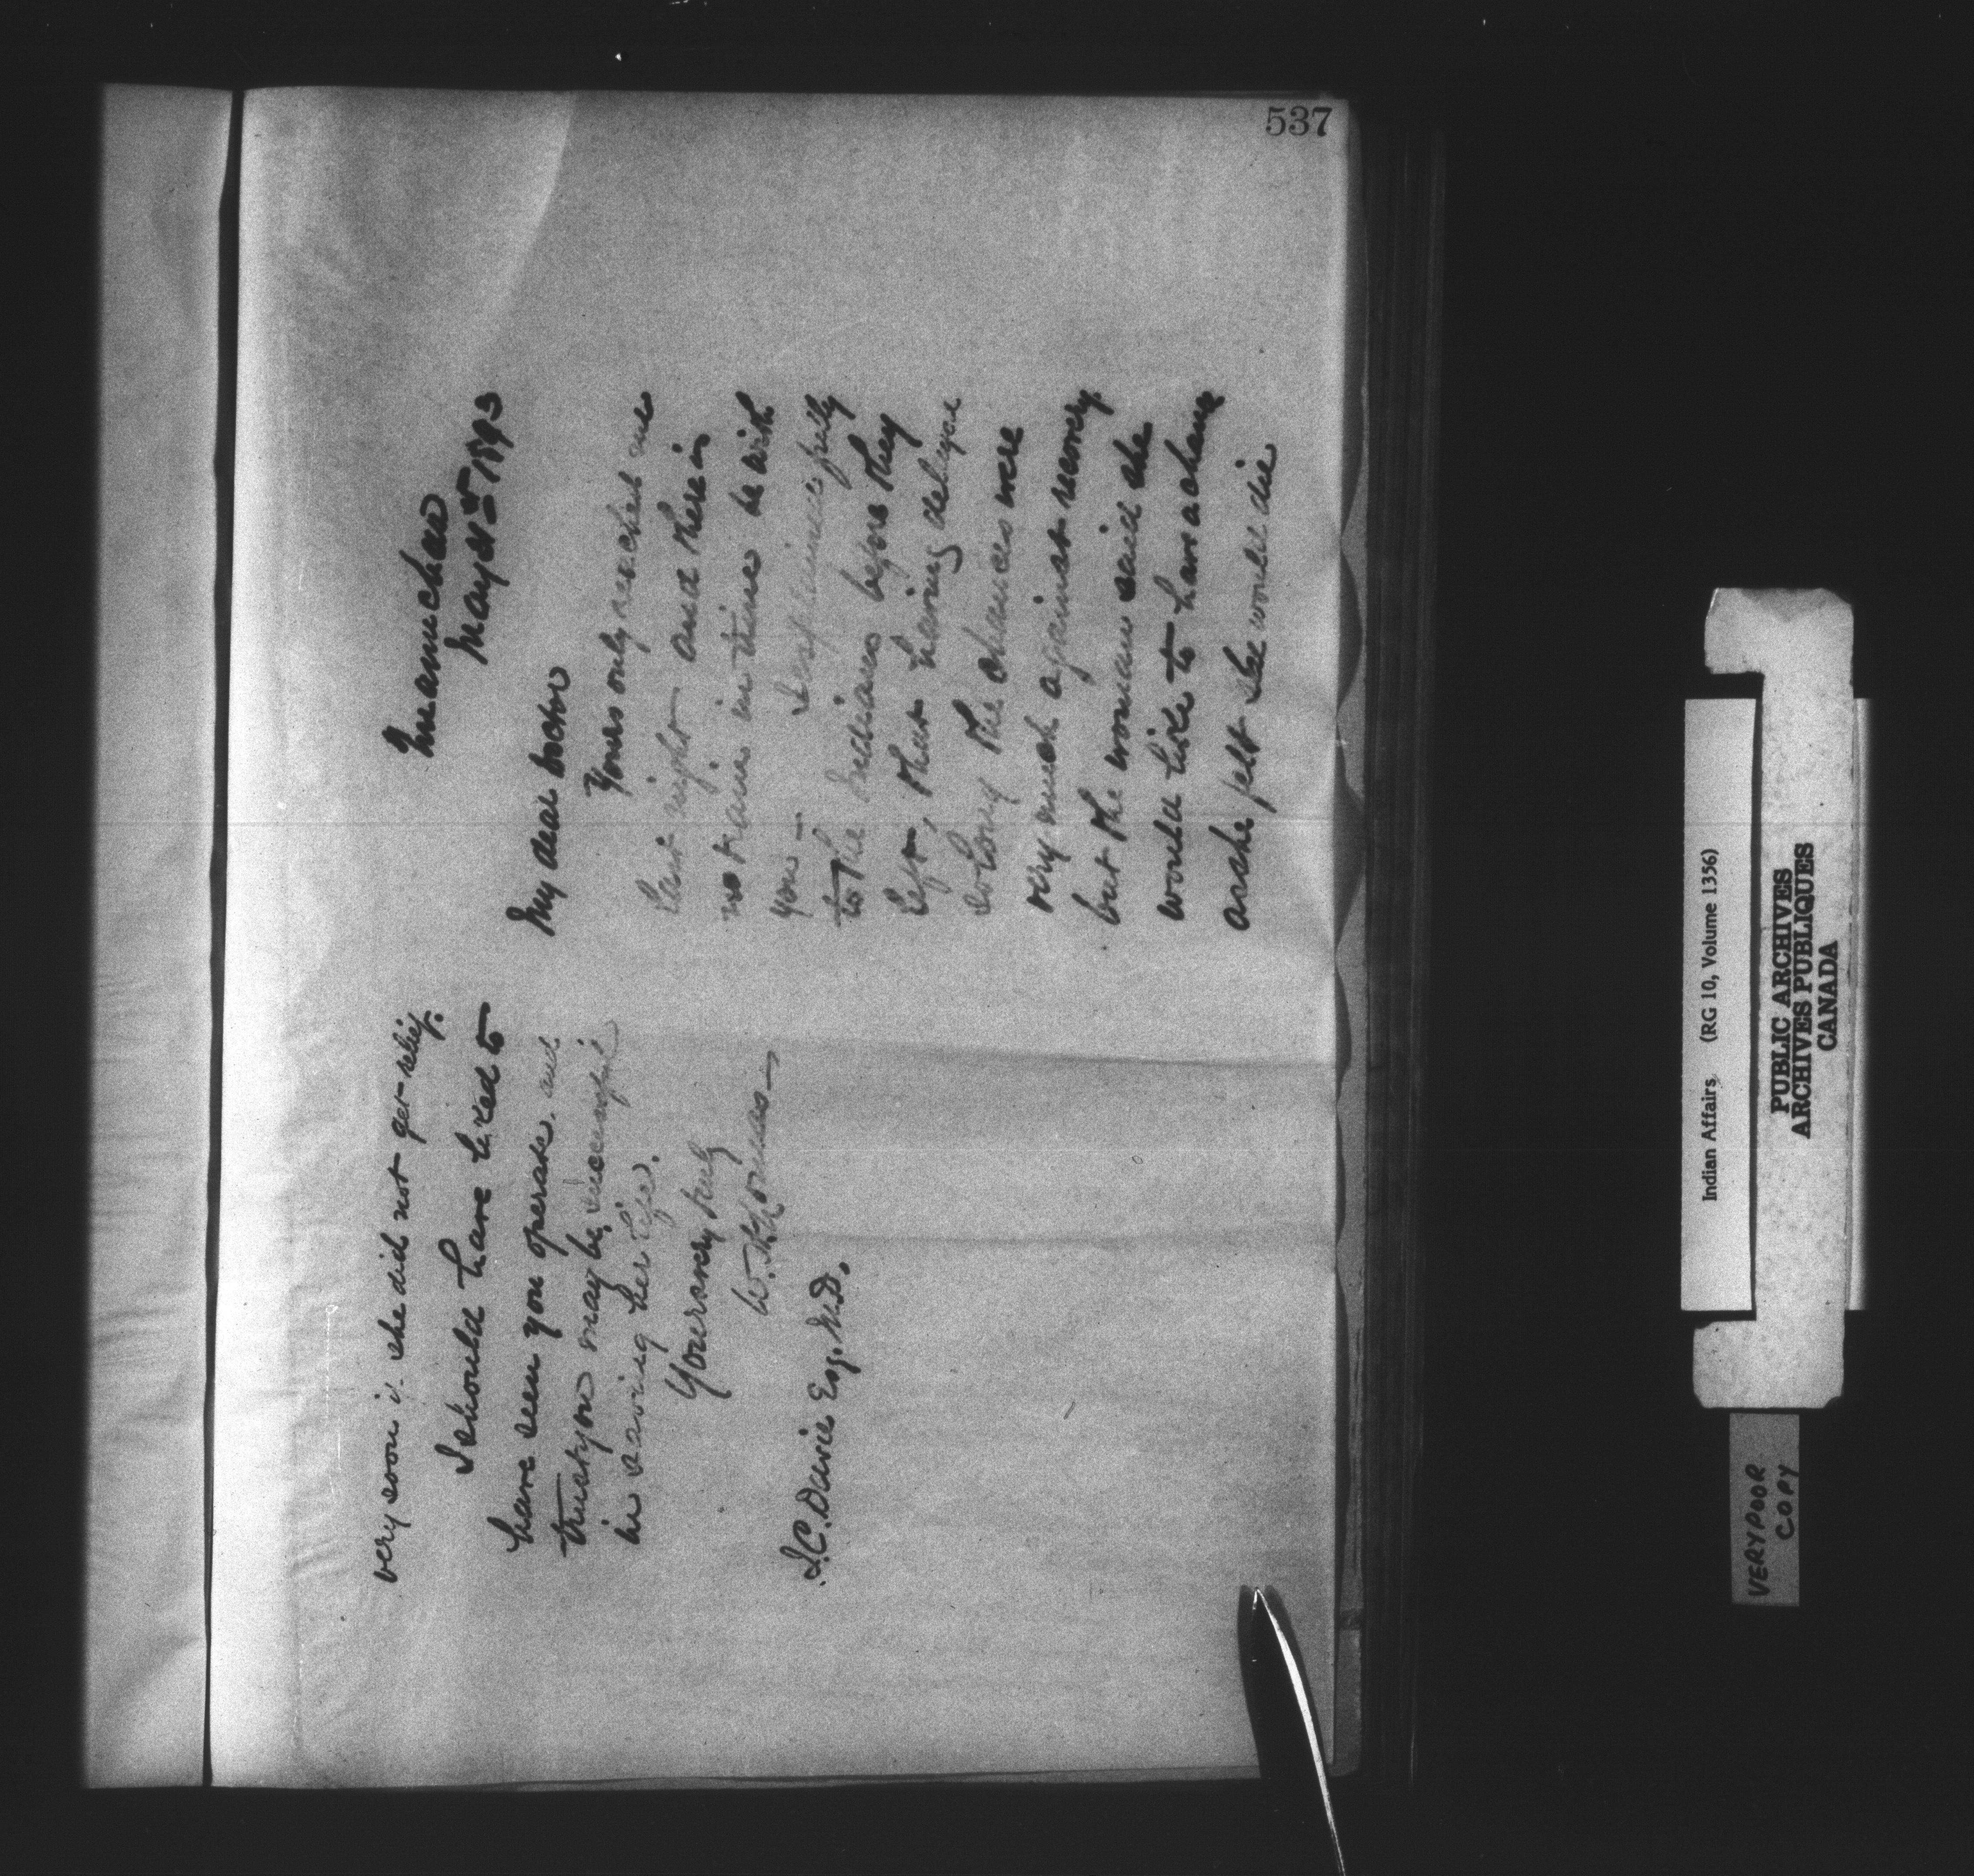 537
Quamichan
May 21st 1893
My dear Doctor
Yours only reached me
last night and there is
no train in time to be with
you — I explained fully
to the Indians before they
left, that having delayed
so long the chances were
very much against recovery
but the woman said she
would like to have a chance
as she felt she would die
very soon if she did not get relief.
I should have liked to
have seen you operate. and
trust you may be successful
in saving her life.
Yours very truly
W. H. Lomas —
J.C. Davie Esq. M.D.
Indian Affairs. (RG 10, Volume 1356)
PUBLIC ARCHIVES
ARCHIVES PUBLIQUES
CANADA
VERY POOR
COPY